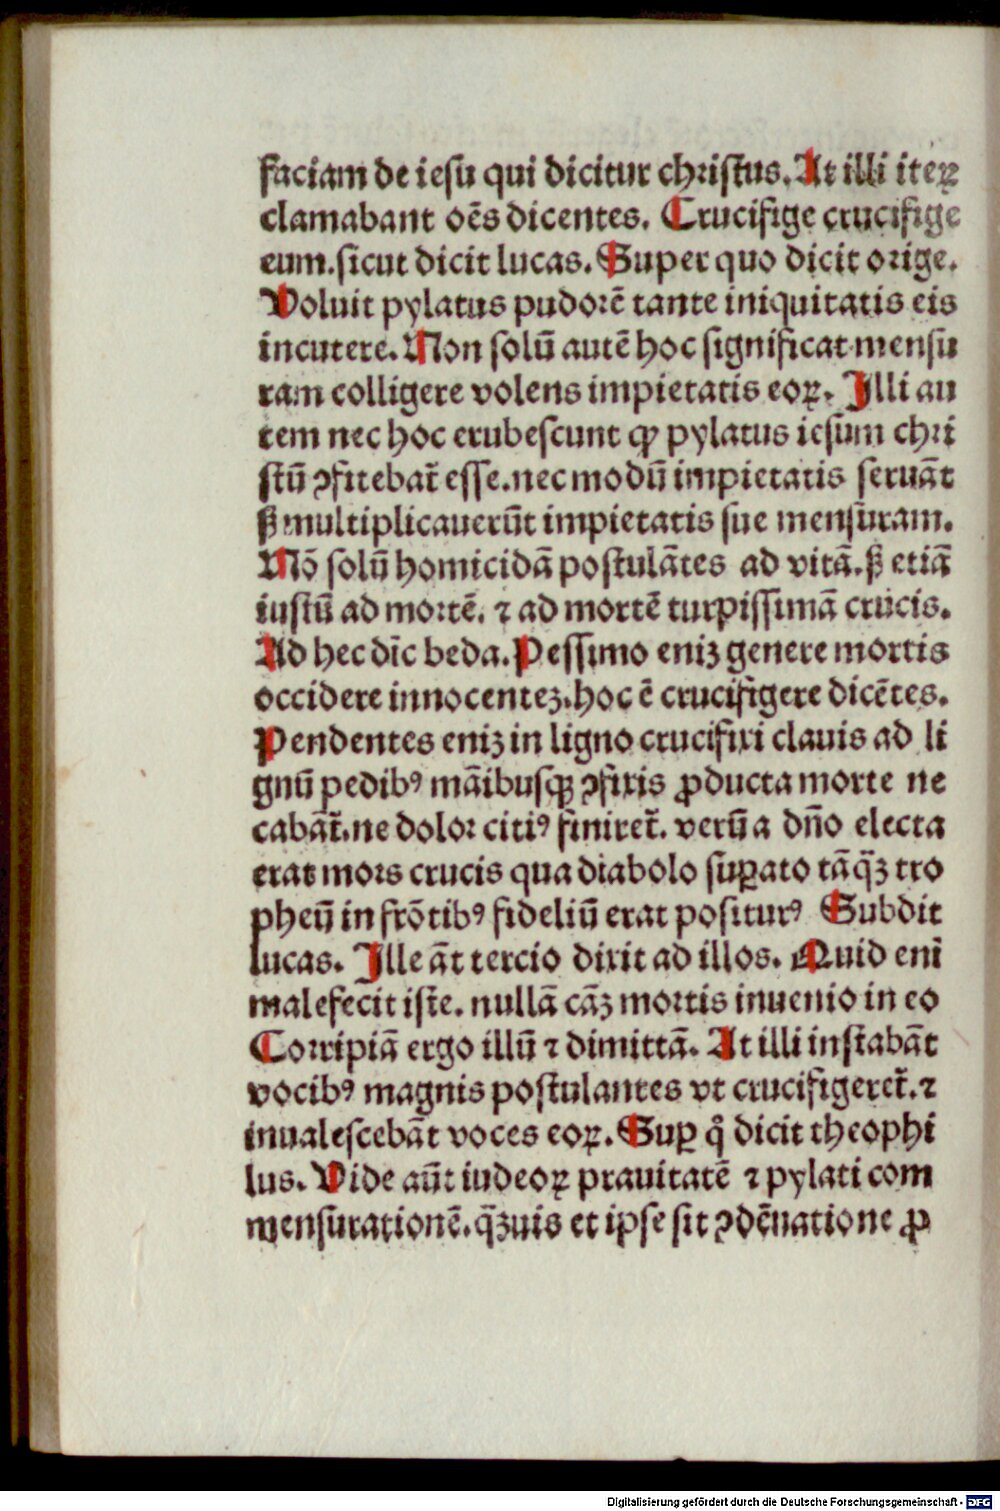 faciam de iesu qui dicitur christus. At illi iteꝝ
clamabant oēs dicentes. Crucifige crucifige
eum. sicut dicit lucas. Super quo dicit orige.
Uoluit pylatus pudorē tante iniquitatis eis
incutere. Non solū autē hoc significat mensu
ram colligere volens impietatis eoꝝ. Illi au
tem nec hoc erubescunt ꝙ pylatus iesum chri
stū ꝯfitebat̄ esse. nec modū impietatis seruāt
ꝭ multiplicauerūt impietatis sue mensuram.
Nō solū homicidā postulātes ad vitā. ꝭ etiā
iustū ad mortē. ⁊ ad mortē turpissimā crucis.
Ad hec dīc beda. Pessimo eniꝫ genere mortis
occidere innocenteꝫ. hoc ē crucifigere dicētes.
Pendentes eniꝫ in ligno crucifixi clauis ad li
gnū pedibꝰ māibusqꝫ ꝯfixis ꝓducta morte ne
cabāt̄. ne dolor citiꝰ finiret̄. verū a dn̄o electa
erat mors crucis qua diabolo suꝑato tāq̄ꝫ tro
pheū in frōtibꝰ fideliū erat positurꝰ Subdit
lucas. Ille āt tercio dixit ad illos. Quid eni
malefecit iste. nullā cāꝫ mortis inuenio in eo
Corripiā ergo illū ⁊ dimittā. At illi instabāt
vocibꝰ magnis postulantes vt crucifigeret̄. ⁊
inualescebāt voces eoꝝ. Suꝑ qͦ dicit theophi
lus. Vide aūt iudeoꝝ prauitatē ⁊ pylati com
mensurationē. q̄ꝫuis et ipse sit ꝯdēnatione ꝓ
Digitalisierung gefördert durch die Deutsche Forschungsgemeinschaft - DFG